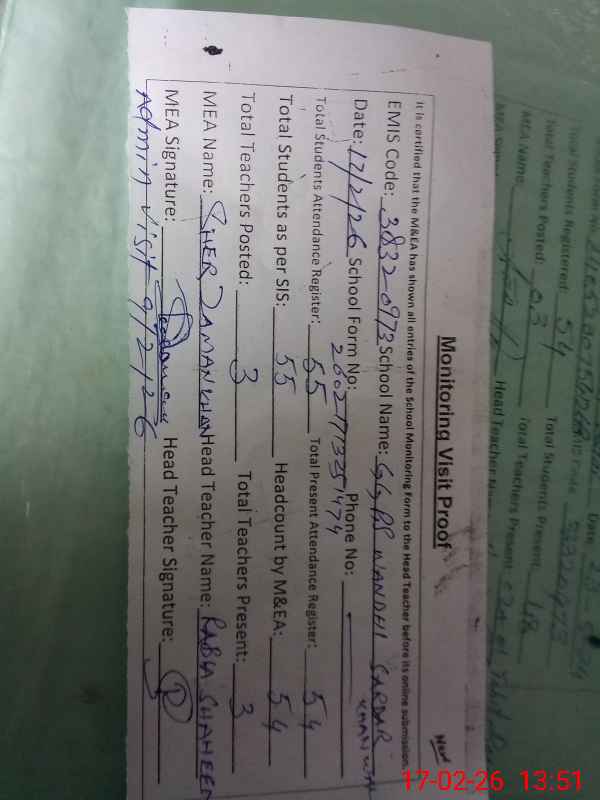 Monitoring Visit Proof
New
It is certified that the M&EA has shown all entries of the School Monitoring Form to the Head Teacher before its online submission.
EMIS Code: 38320973 School Name: GGPS WANDHI SARDAR KHAN WALI
Date: 17/2/26 School Form No: 26021713251474 Phone No:
Total Students Attendance Register: 55 Total Present Attendance Register: 54
Total Students as per SIS: 55 Headcount by M&EA: 54
Total Teachers Posted: 3 Total Teachers Present: 3
MEA Name: SHER ZAMAN KHAN Head Teacher Name: RABIA SHAHEEN
MEA Signature: Head Teacher Signature:
Admin visit 9/2/26
Date
Total Students Registered: 54 Total Students Present:
Total Teachers Posted: 03 Total Teachers Present
MEA Name Head Teacher
17-02-26 13:51